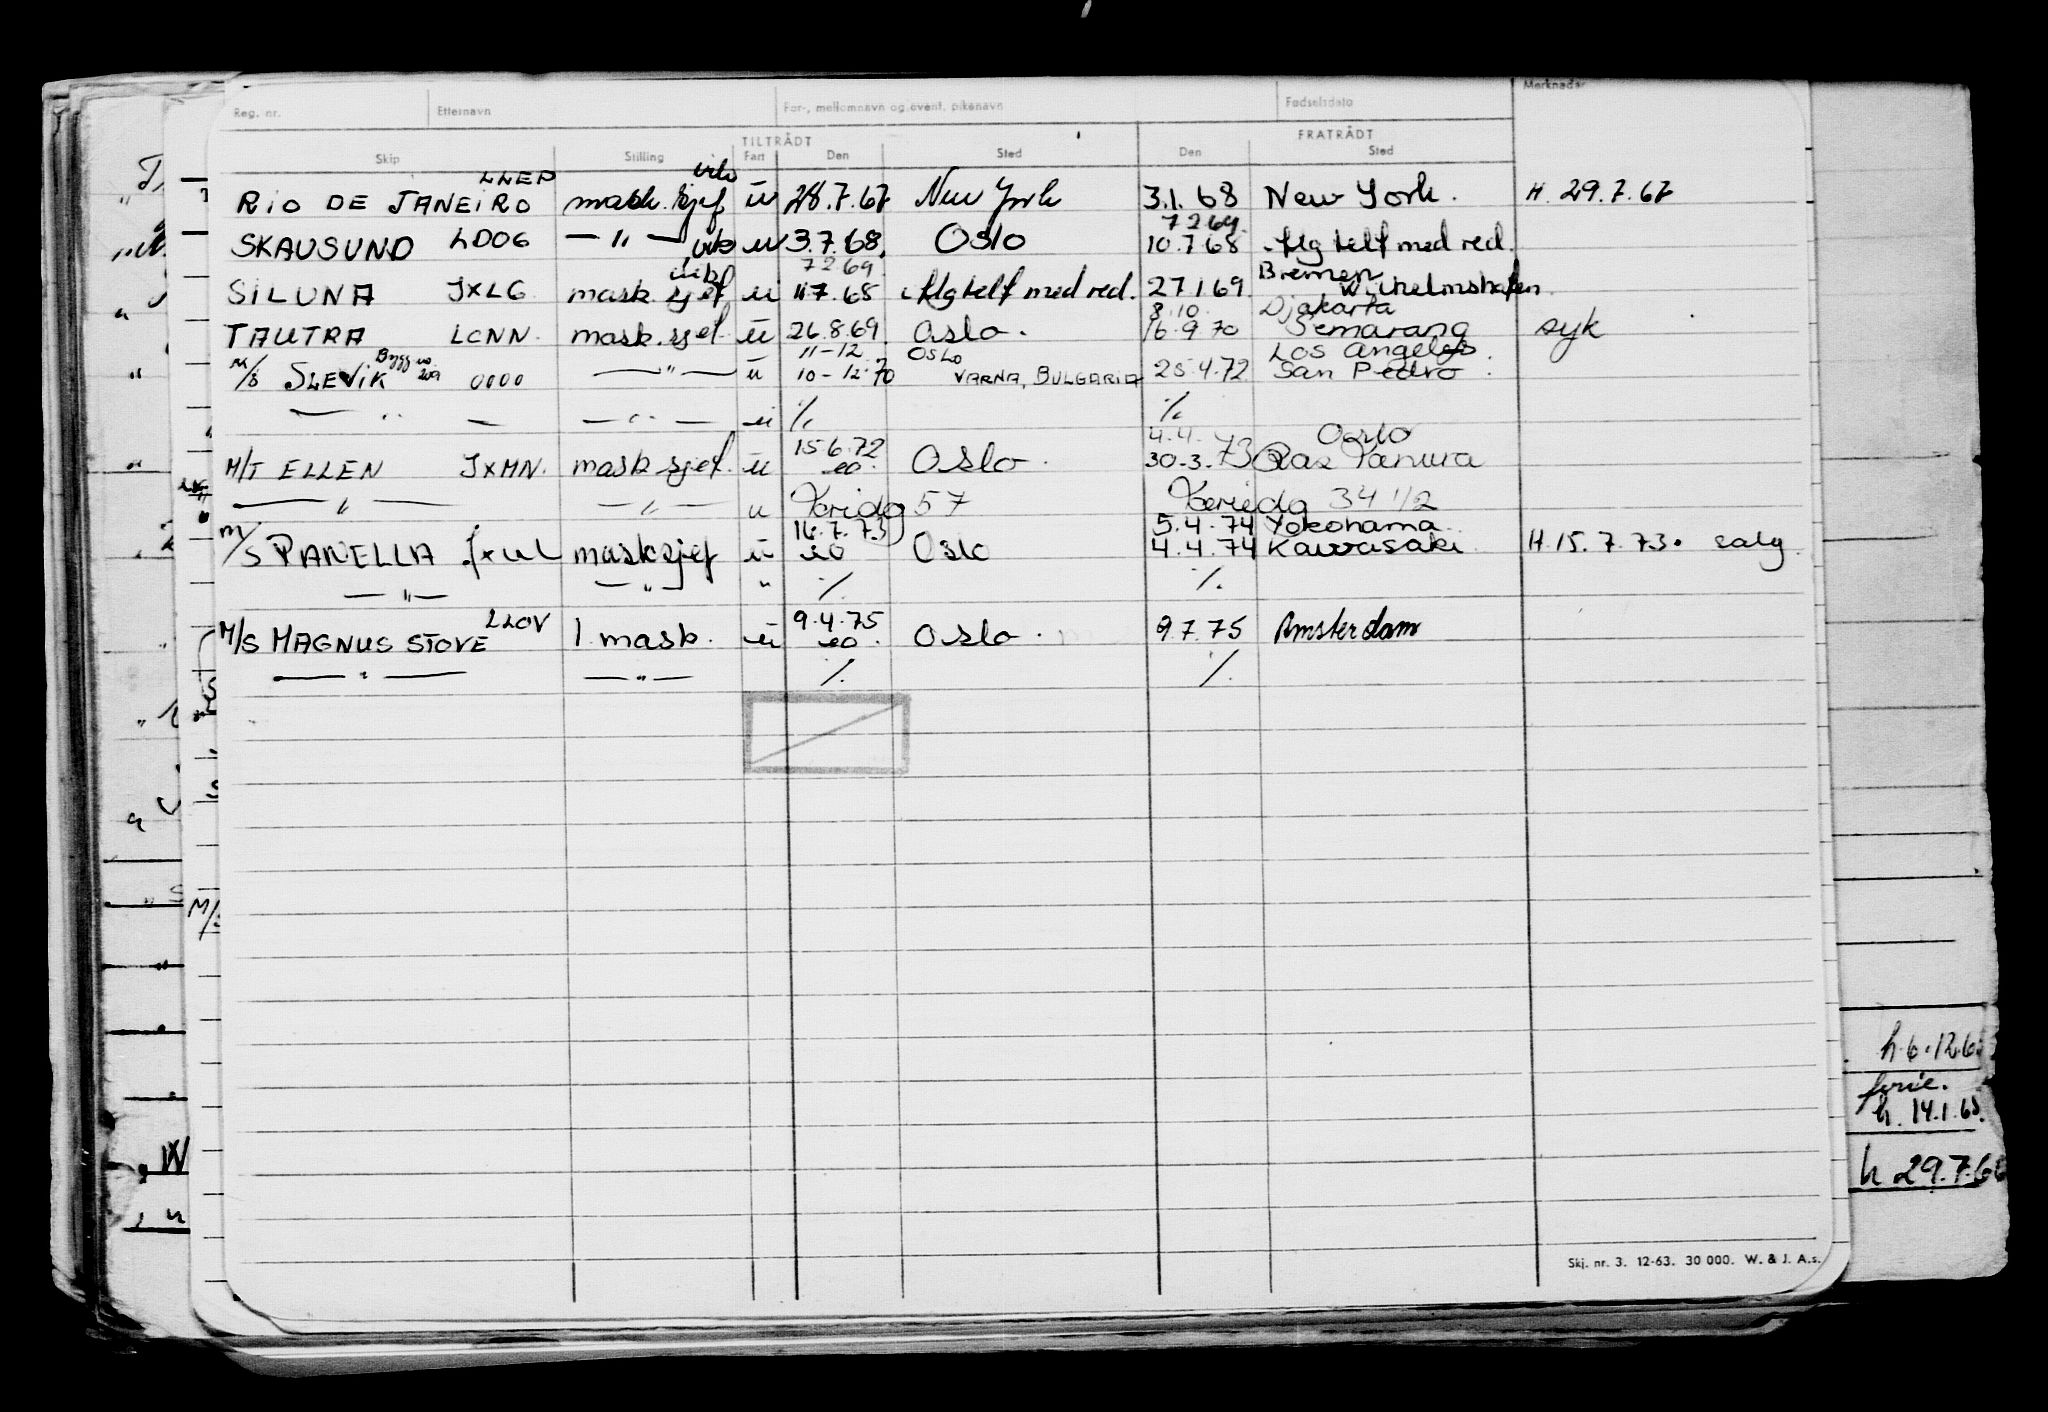 Reg. nr. Etternavn For-, mellomnavn og event. pikenavn Fødselsdato Merknader
TILTRÅDT FRATRÅDT
Skip Stilling Fart Den Sted Den Sted
LLEP vik
RIO DE JANEIRO mask. sjef u 28.7.67 New York 3.1.68 New York. H. 29.7.67
7 2 69.
SKAUSUND LDOG — " — u 3.7.68. Oslo 10.7.68 tlg telf med red.
7 2 69. Bremen
SILUNA JXLG mask. sjef u 11 7. 68 tlg telf med red. 27 1 69. Wilhelmshafen.
8.10. Djakarta
TAUTRA LCNN. mask. sjef. u 26.8.69 Oslo. 16.9.70 Semarang syk
Bygg no 209 11-12 OSLO Los Angeles
M/S SLEVIK 0000 — " — u 10-12-70 VARNA, BULGARIA 25.4.72 San Pedro.
— " — — " — u ./. ./.
15.6.72 4.4. Oslo
M/T ELLEN JXMN. mask sjef. u Oslo. 30.3.73 Ras Tanura
— " — — " — u Feriedg 57 Feriedg 34 1/2
16.7.73 5.4.74 Yokohama
M/S PANELLA mask sjef u Oslo 4.4.74 Kawasaki H. 15.7.73. salg.
— " — — " — " ./. ./.
LLOV 9.4.75
M/S MAGNUS STOVE 1 mask. u Oslo. 9.7.75 Amsterdam
— " — — " — ./. ./.
h. 6.12.6
ferie.
h. 14.1.65
h 29.7.6
Skj. nr. 3. 12-63. 30 000. W. & J. A.s.